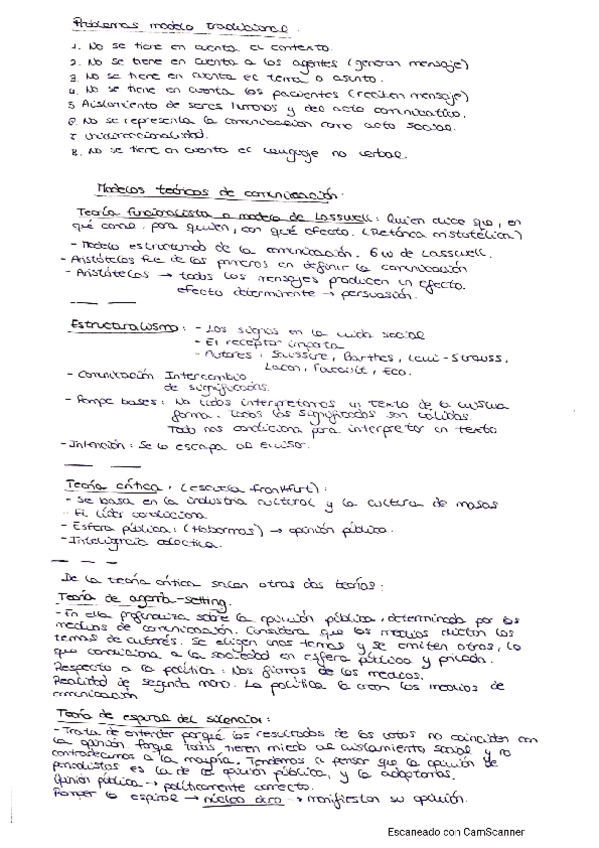 Problemas modelo tradicional.
1. No se tiene en cuenta el contexto.
2. No se tiene en cuenta a los agentes (generan mensaje)
3. No se tiene en cuenta el tema o asunto.
4. No se tiene en cuenta los pacientes (reciben mensaje)
5 Aislamiento de seres humanos y del acto comunicativo.
6. No se representa la comunicación como acto social.
7 Unidireccionalidad.
8. No se tiene en cuenta el lenguaje no verbal.
Modelos teóricos de comunicación.
Teoría funcionalista o modelo de Lasswell: Quien dice que, en
qué canal, para quien, con qué efecto. (Retórica aristotélica)
- Modelo estructurado de la comunicación. 6w de Lasswell.
- Aristóteles fue de los primeros en definir la comunicación
- Aristóteles → todos los mensajes producen un efecto.
efecto determinente → persuasión.
Estructuralismo: - Los signos en la vida social
- El receptor importa
- Autores: Saussure, Barthes, Levi-Strauss,
Lacan, Foucault, Eco.
- Comunicación Intercambio
de significados.
- Rompe bases: No todos interpretamos un texto de la misma
forma. Todos los significados son válidos.
Todo nos condiciona para interpretar un texto
- Intención: Se le escapa al emisor.
Teoría crítica. (escuela Frankfurt):
- Se basa en la industria cultural y la cultura de masas
- El líder condiciona
- Esfera pública: (Habermas) → opinión pública.
- Inteligencia colectiva.
De la teoría crítica salen otras dos teorías:
Teoría de agenda-setting.
- En ella profundiza sobre la opinión pública, determinada por los
medios de comunicación. Considera que los medios dictan los
temas de interés. Se eligen unos temas y se omiten otros, lo
que condiciona a la sociedad en esfera pública y privada.
Respecto a la política: Nos fiamos de los medios.
Realidad de segunda mano. La política la crean los medios de
comunicación
Teoría de espiral del silencio:
- Trata de entender porqué los resultados de los votos no coinciden con
la opinión. Porque tienen miedo al aislamiento social y no
contradecimos a la mayoría. Tendemos a pensar que la opinión de
periodistas es la de la opinión pública, y la adoptamos.
Opinión pública → políticamente correcto.
Romper la espiral → núcleo duro → manifiestan su opinión.
Escaneado con CamScanner